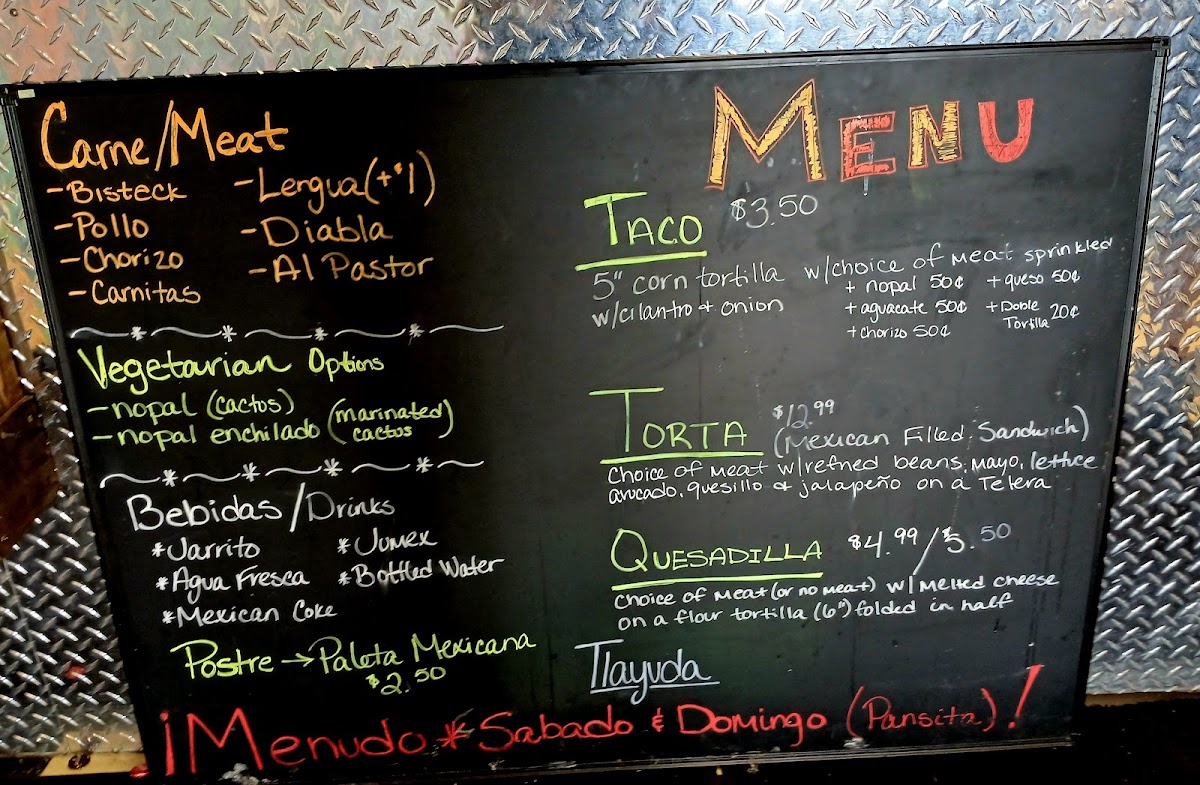 Carne/Meat
-Bisteck
-Pollo
-Chorizo
-Carnitas
-Lengua(+$1)
-Diabla
-Al Pastor
Vegetarian Options
-nopal (cactos)
-nopal enchilado (marinated cactos)
Bebidas/Drinks
*Jarrito
*Agua Fresca
*Mexican Coke
*Jumex
*Bottled Water
Postre → Paleta Mexicana
$2.50
MENU
TACO $3.50
5" corn tortilla w/choice of meat sprinkled
w/cilantro & onion
+ nopal 50¢ + queso 50¢
+ aguacate 50¢ + Doble Tortilla 20¢
+ chorizo 50¢
TORTA $12.99
(Mexican Filled Sandwich)
Choice of meat w/refried beans, mayo, lettuce
avocado, quesillo & jalapeño on a Telera
QUESADILLA $4.99/$5.50
Choice of meat (or no meat) w/ melted cheese
on a flour tortilla (6") folded in half
Tlayuda
¡Menudo * Sabado & Domingo (Pansita)!